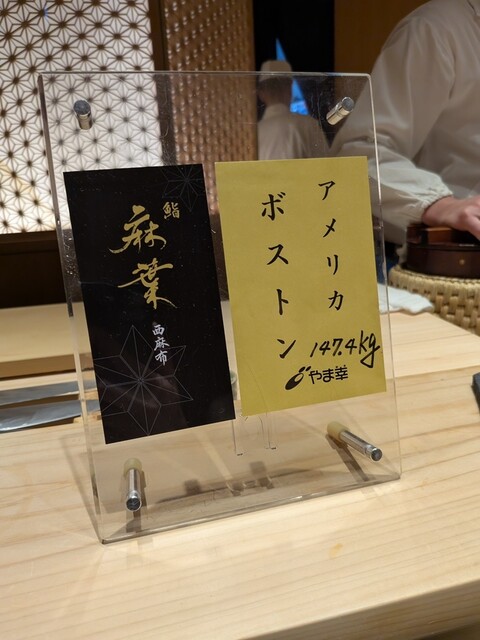 鮨
麻葉
西麻布
アメリカ
ボストン
147.4kg
やま幸